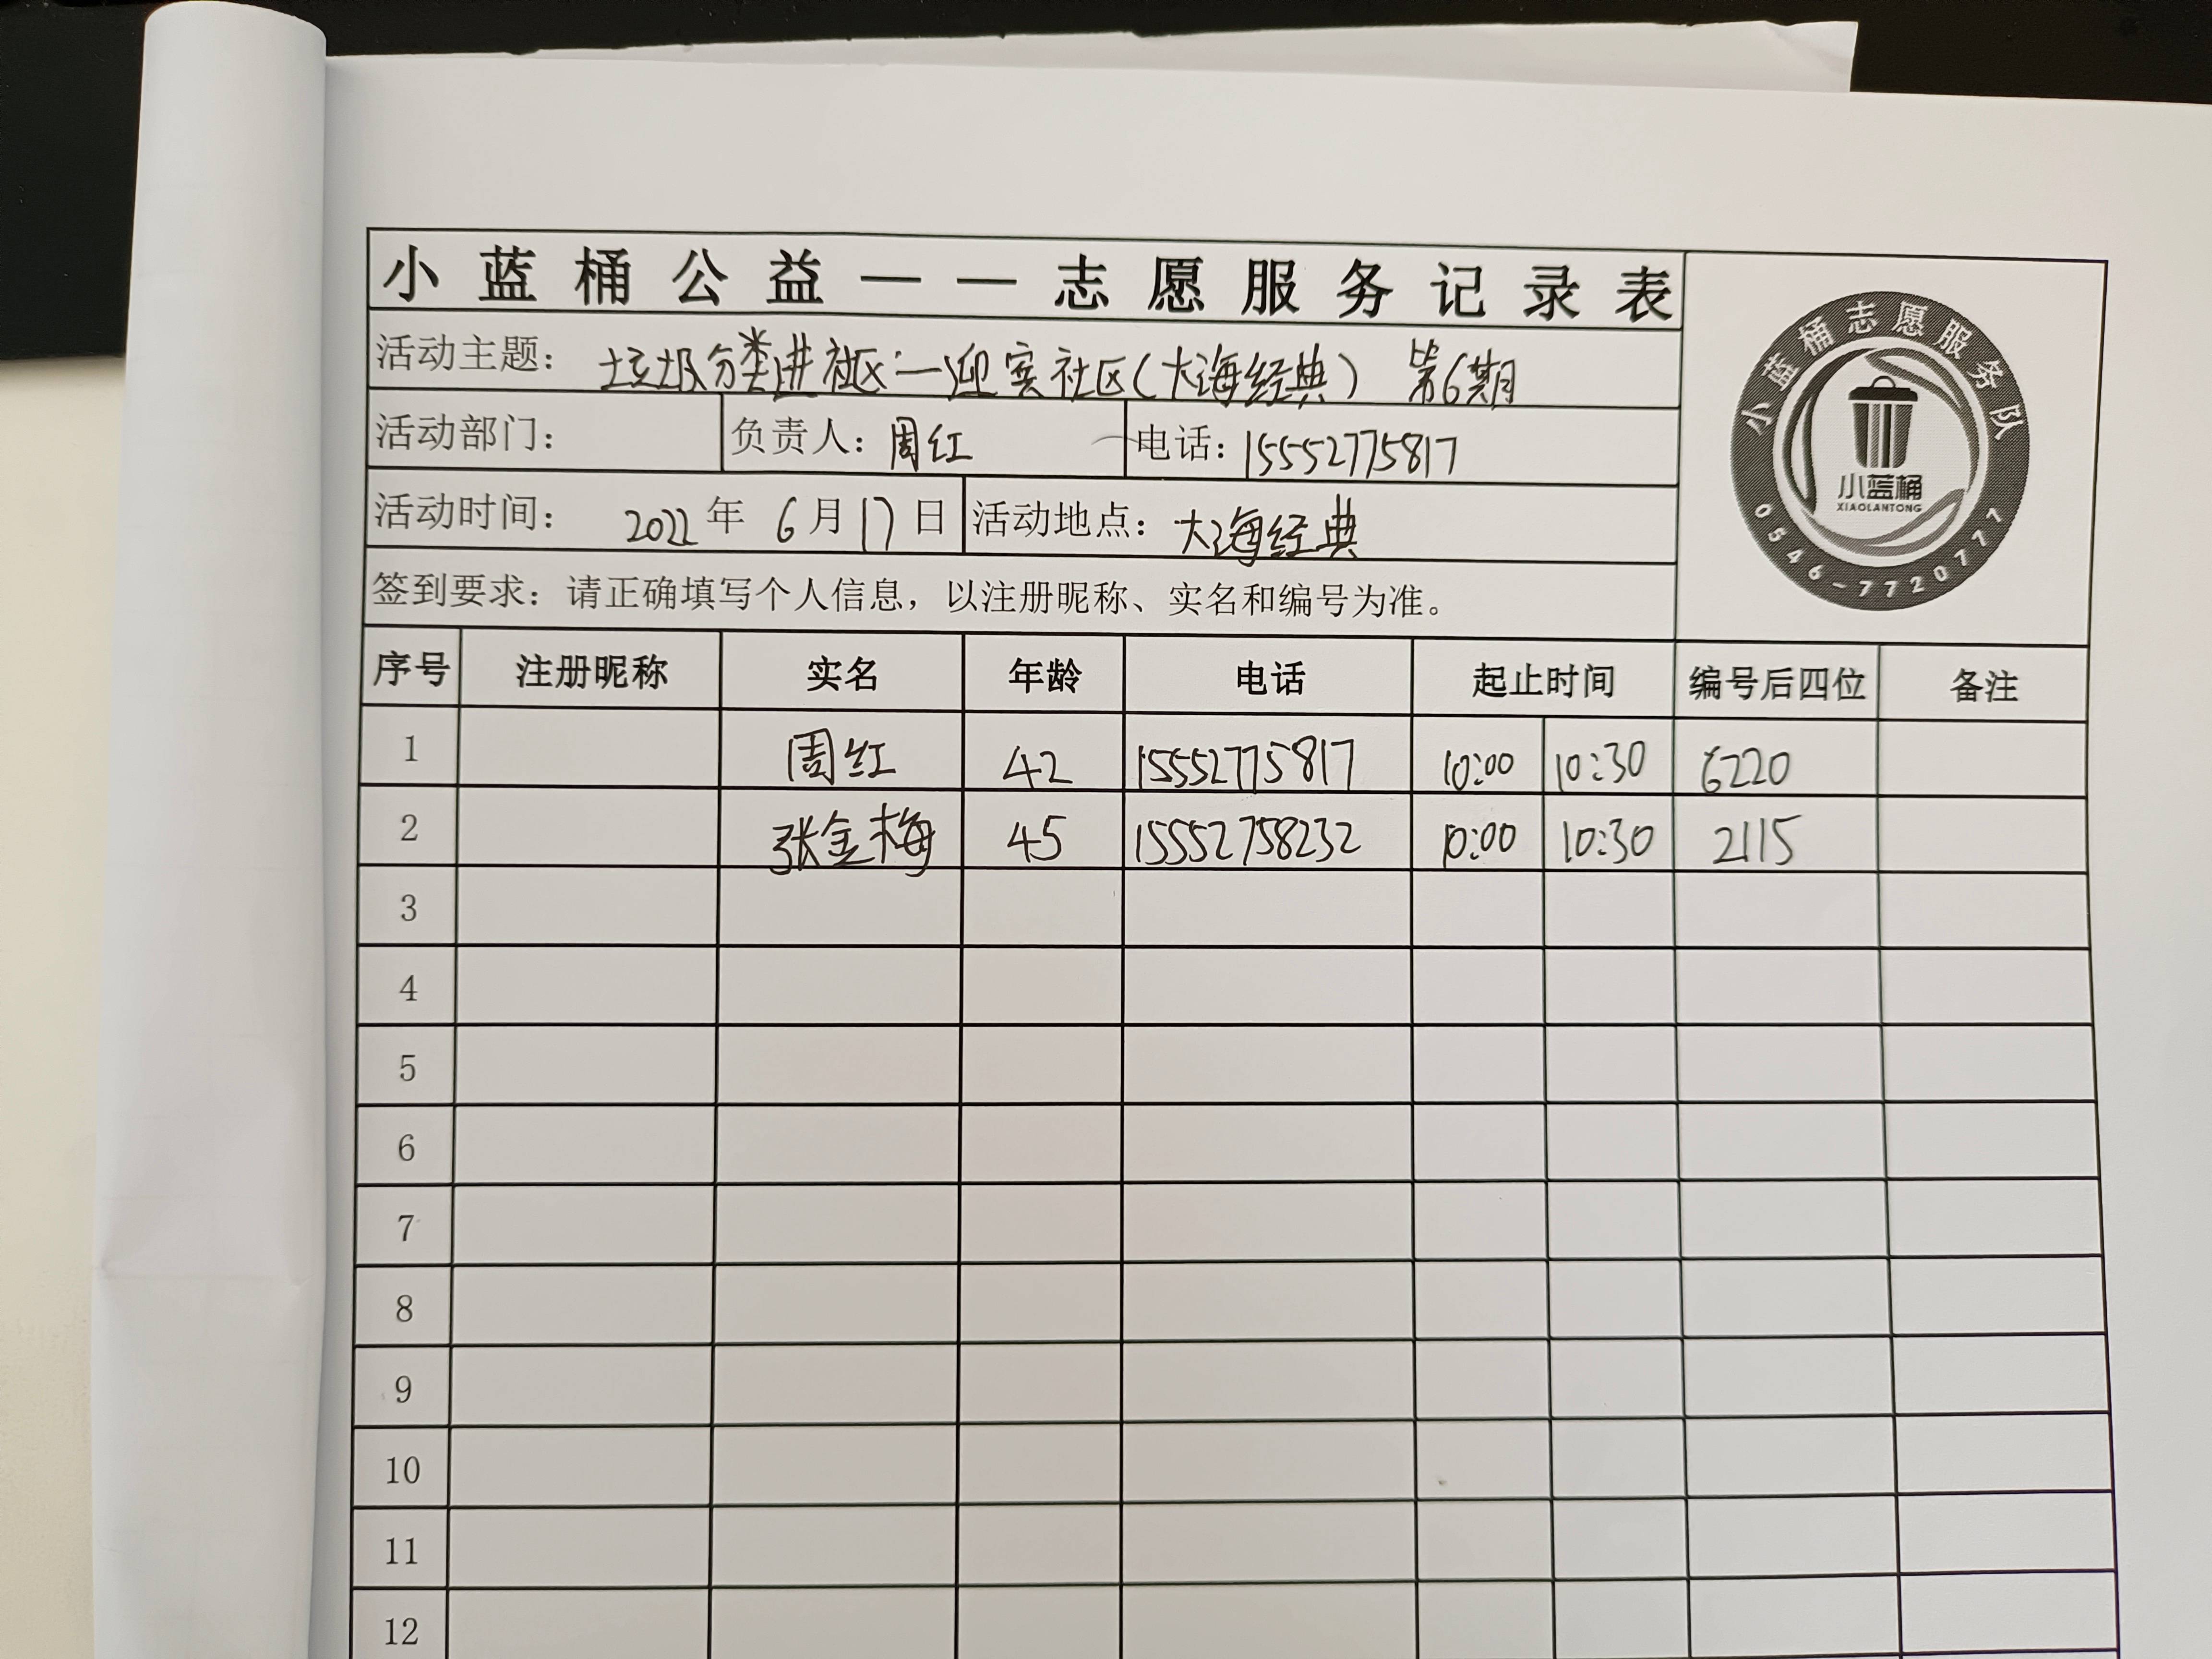 小蓝桶公益——志愿服务记录表
活动主题： 垃圾分类进社区:—迎宾社区(大海经典) 第6期
活动部门： 负责人：周红 电话：15552775817
活动时间： 2022年 6月17日 活动地点：大海经典
签到要求：请正确填写个人信息，以注册昵称、实名和编号为准。
小蓝桶志愿服务队
小蓝桶
XIAOLANTONG
0546-7720777
序号 注册昵称 实名 年龄 电话 起止时间 编号后四位 备注
1 周红 42 15552775817 10:00 10:30 6220
2 张金梅 45 15552758232 10:00 10:30 2115
3
4
5
6
7
8
9
10
11
12